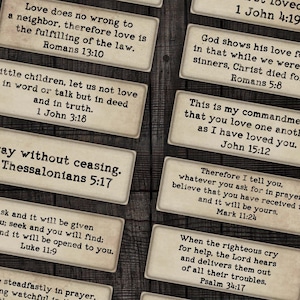 Love does no wrong to
a neighbor, therefore love is
the fulfilling of the law.
Romans 13:10
little children, let us not love
in word or talk but in deed
and in truth.
1 John 3:18
without ceasing.
Thessalonians 5:17
and it will be given
seek and you will find;
and it will be opened to you.
Luke 11:9
steadfastly in prayer,
watchful in
loved
1 John 4:19
God shows his love
in that while we were
sinners, Christ died for
Romans 5:8
This is my commandment
that you love one another
as I have loved you.
John 15:12
Therefore I tell you,
whatever you ask for in prayer
believe that you have received
and it will be yours.
Mark 11:24
When the righteous cry
for help, the Lord hears
and delivers them out
of all their troubles.
Psalm 34:17